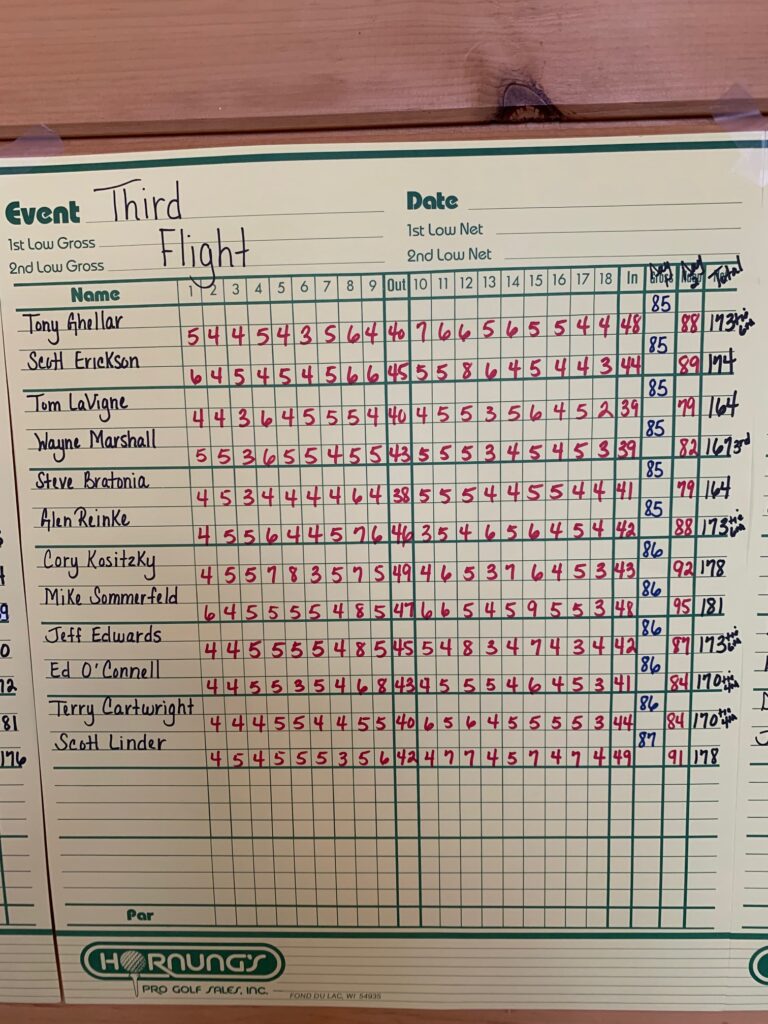 Event Third Date
1st Low Gross Flight 1st Low Net
2nd Low Gross 2nd Low Net
Name 1 2 3 4 5 6 7 8 9 Out 10 11 12 13 14 15 16 17 18 In Day Day 2 Total
Tony Ghellar 5 4 4 5 4 3 5 6 4 40 7 6 6 5 6 5 5 4 4 48 85 88 173
Scott Erickson 6 4 5 4 5 4 5 6 6 45 5 5 8 6 4 5 4 4 3 44 85 89 174
Tom LaVigne 4 4 3 6 4 5 5 5 4 40 4 5 5 3 5 6 4 5 2 39 85 79 164
Wayne Marshall 5 5 3 6 5 5 4 5 5 43 5 5 5 3 4 5 4 5 3 39 85 82 167 3rd
Steve Bratonia 4 5 3 4 4 4 4 6 4 38 5 5 5 4 4 5 5 4 4 41 85 79 164
Glen Reinke 4 5 5 6 4 4 5 7 6 46 3 5 4 6 5 6 4 5 4 42 85 88 173
Cory Kositzky 4 5 5 7 8 3 5 7 5 49 4 6 5 3 7 6 4 5 3 43 86 92 178
Mike Sommerfeld 6 4 5 5 5 5 4 8 5 47 6 6 5 4 5 9 5 5 3 48 86 95 181
Jeff Edwards 4 4 5 5 5 5 4 8 5 45 5 4 8 3 4 7 4 3 4 42 86 87 173
Ed O'Connell 4 4 5 5 3 5 4 6 8 43 4 5 5 5 4 6 4 5 3 41 86 84 170
Terry Cartwright 4 4 4 5 5 4 4 5 5 40 6 5 6 4 5 5 5 5 3 44 86 84 170
Scott Linder 4 5 4 5 5 5 3 5 6 42 4 7 7 4 5 7 4 7 4 49 87 91 178
Par
HORNUNG'S
PRO GOLF SALES, INC. FOND DU LAC, WI 54935